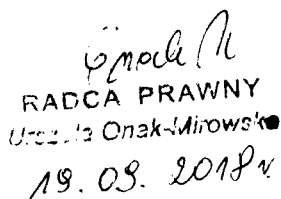 RADCA PRAWNY
Urszula Onak-Mirowska
19.09.2018 r.